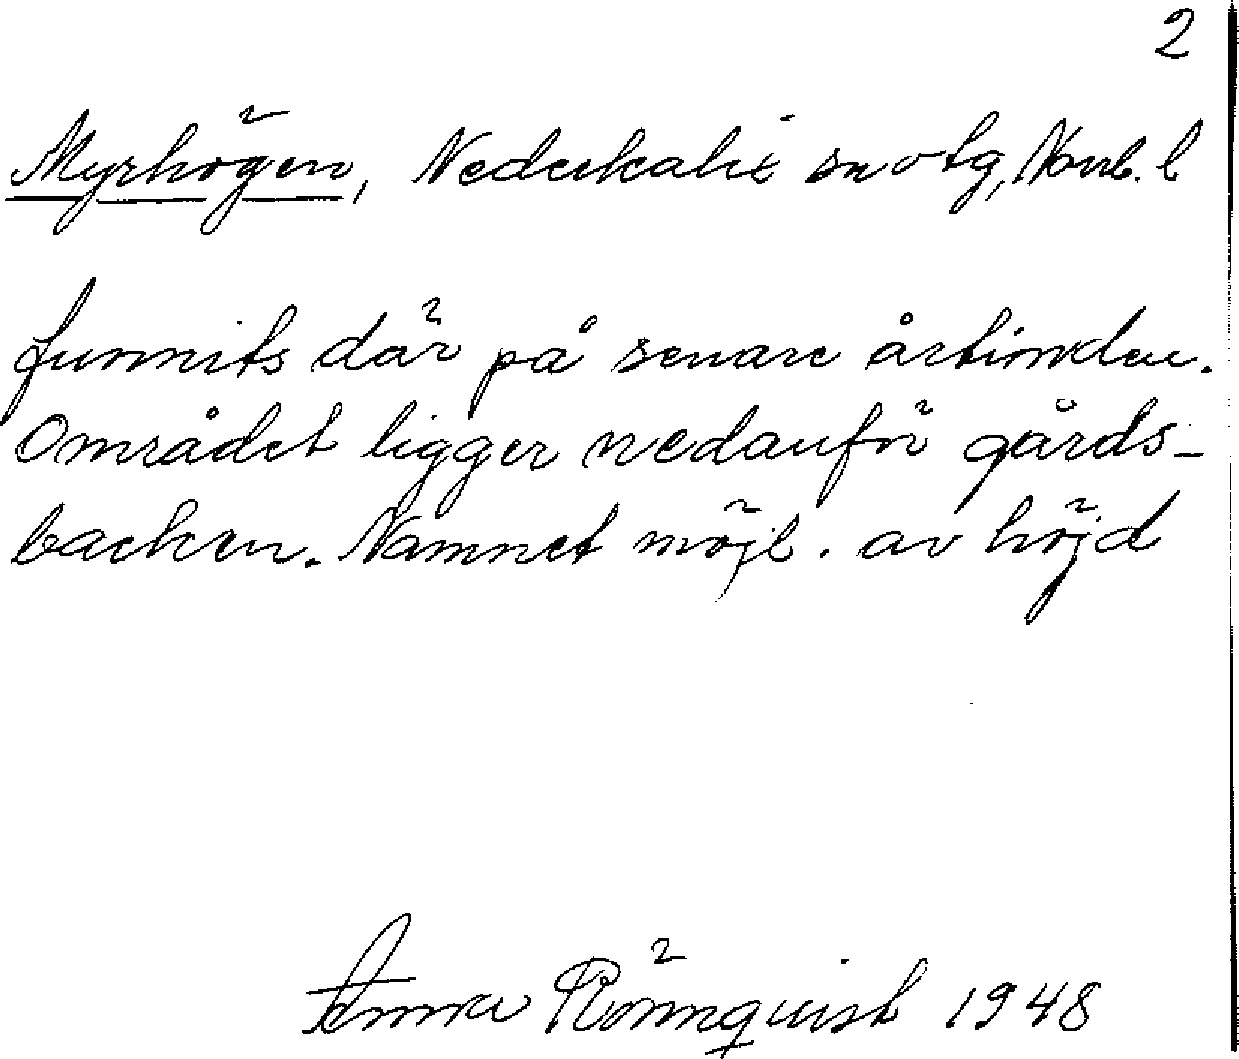 2
Myrhögen, Nederkalix sn o tg, Norrb. l
funnits där på senare årtionden.
Området ligger nedanför gårds-
backen. Namnet möjl. av höjd
Anna Rönnquist 1948